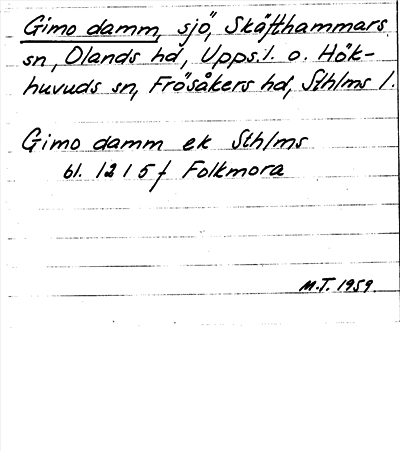 Gimo damm, sjö, Skäfthammars
sn, Olands hd, Upps.l. o. Hök-
huvuds sn, Frösåkers hd, Sthlms l.
Gimo damm ek Sthlms
bl. 1215 f Folkmora
M.T. 1959.